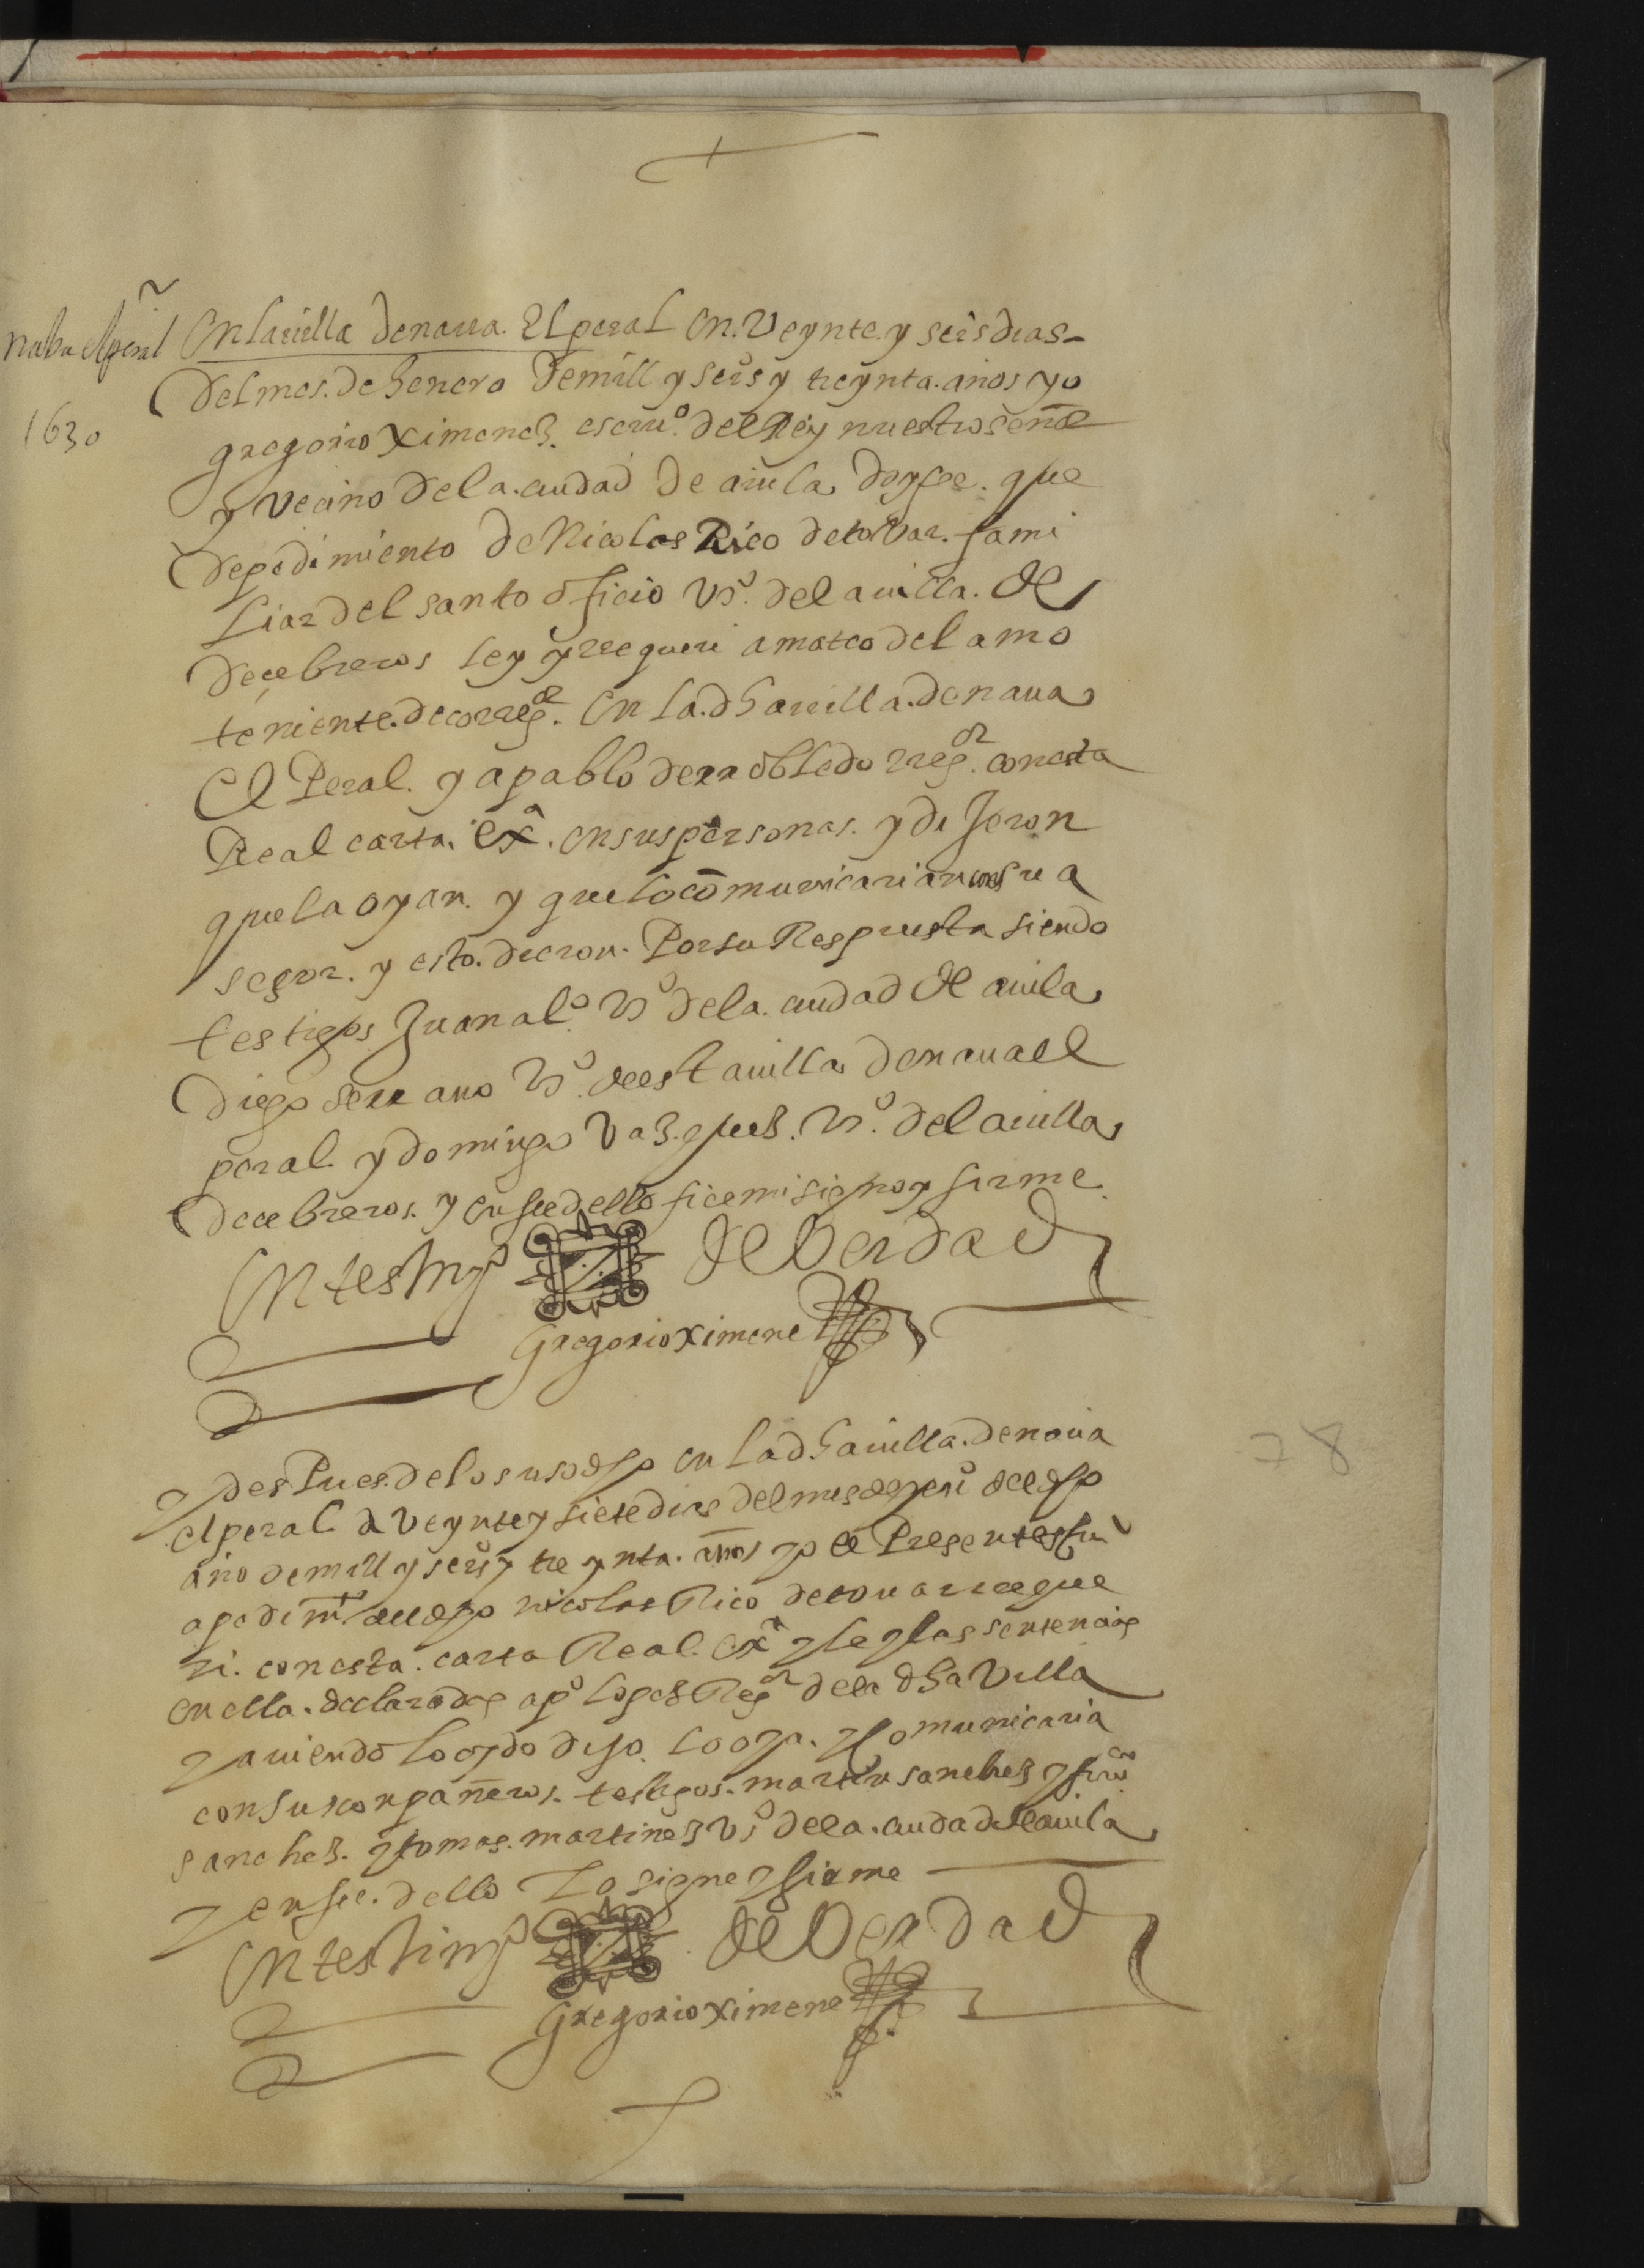 naba el peral
1630
En la uilla de naua El peral En Veynte y seis dias
del mes de henero de mill y seisº y treynta años yo
gregorio Ximenez escriuº del Rey nuestro señor
y vecino de la ciudad de auila doy fee que
de pedimiento de Nicolas Rico de tobar fami
liar del santo oficio vº de la uilla de
de cebreros ley y rrequeri a mateo del amo
teniente de corregor En la dha uilla de naua
El Peral y a pablo de rrobledo rregor con esta
Real carta exª en sus personas y dijeron
que la oyan y que lo comunicarian con su a
sesor y esto dieron Por su Respuesta siendo
testigos Juan alº vº de la ciudad de auila
diego serrano vº de esta uilla de naua el
peral y domingo Vazquez vº de la uilla
de cebreros y en fee dello fice mi signo y firme
En testimº de Verdad
Gregorio Ximenez
y des Pues de lo susodho en la dha uilla de naua
el peral a veynte y siete dias del mes de henº del dho
año de mill y seisº y treynta años yo el Presente scriuº
a pedimtº del dho nicolas Rico de touar rreque
ri con esta carta Real exª y ley las sentencias
en ella declaradas a pº lopez Regor de la dha Villa
y auiendolo oydo dijo lo oya y comunicaria
con sus conpañeros testigos martin sanchez y franco
sanchez y tomas martinez vº de la ciudad de auila
y en fee dello lo signe y firme
En testimº de Verdad
Gregorio Ximenez
78